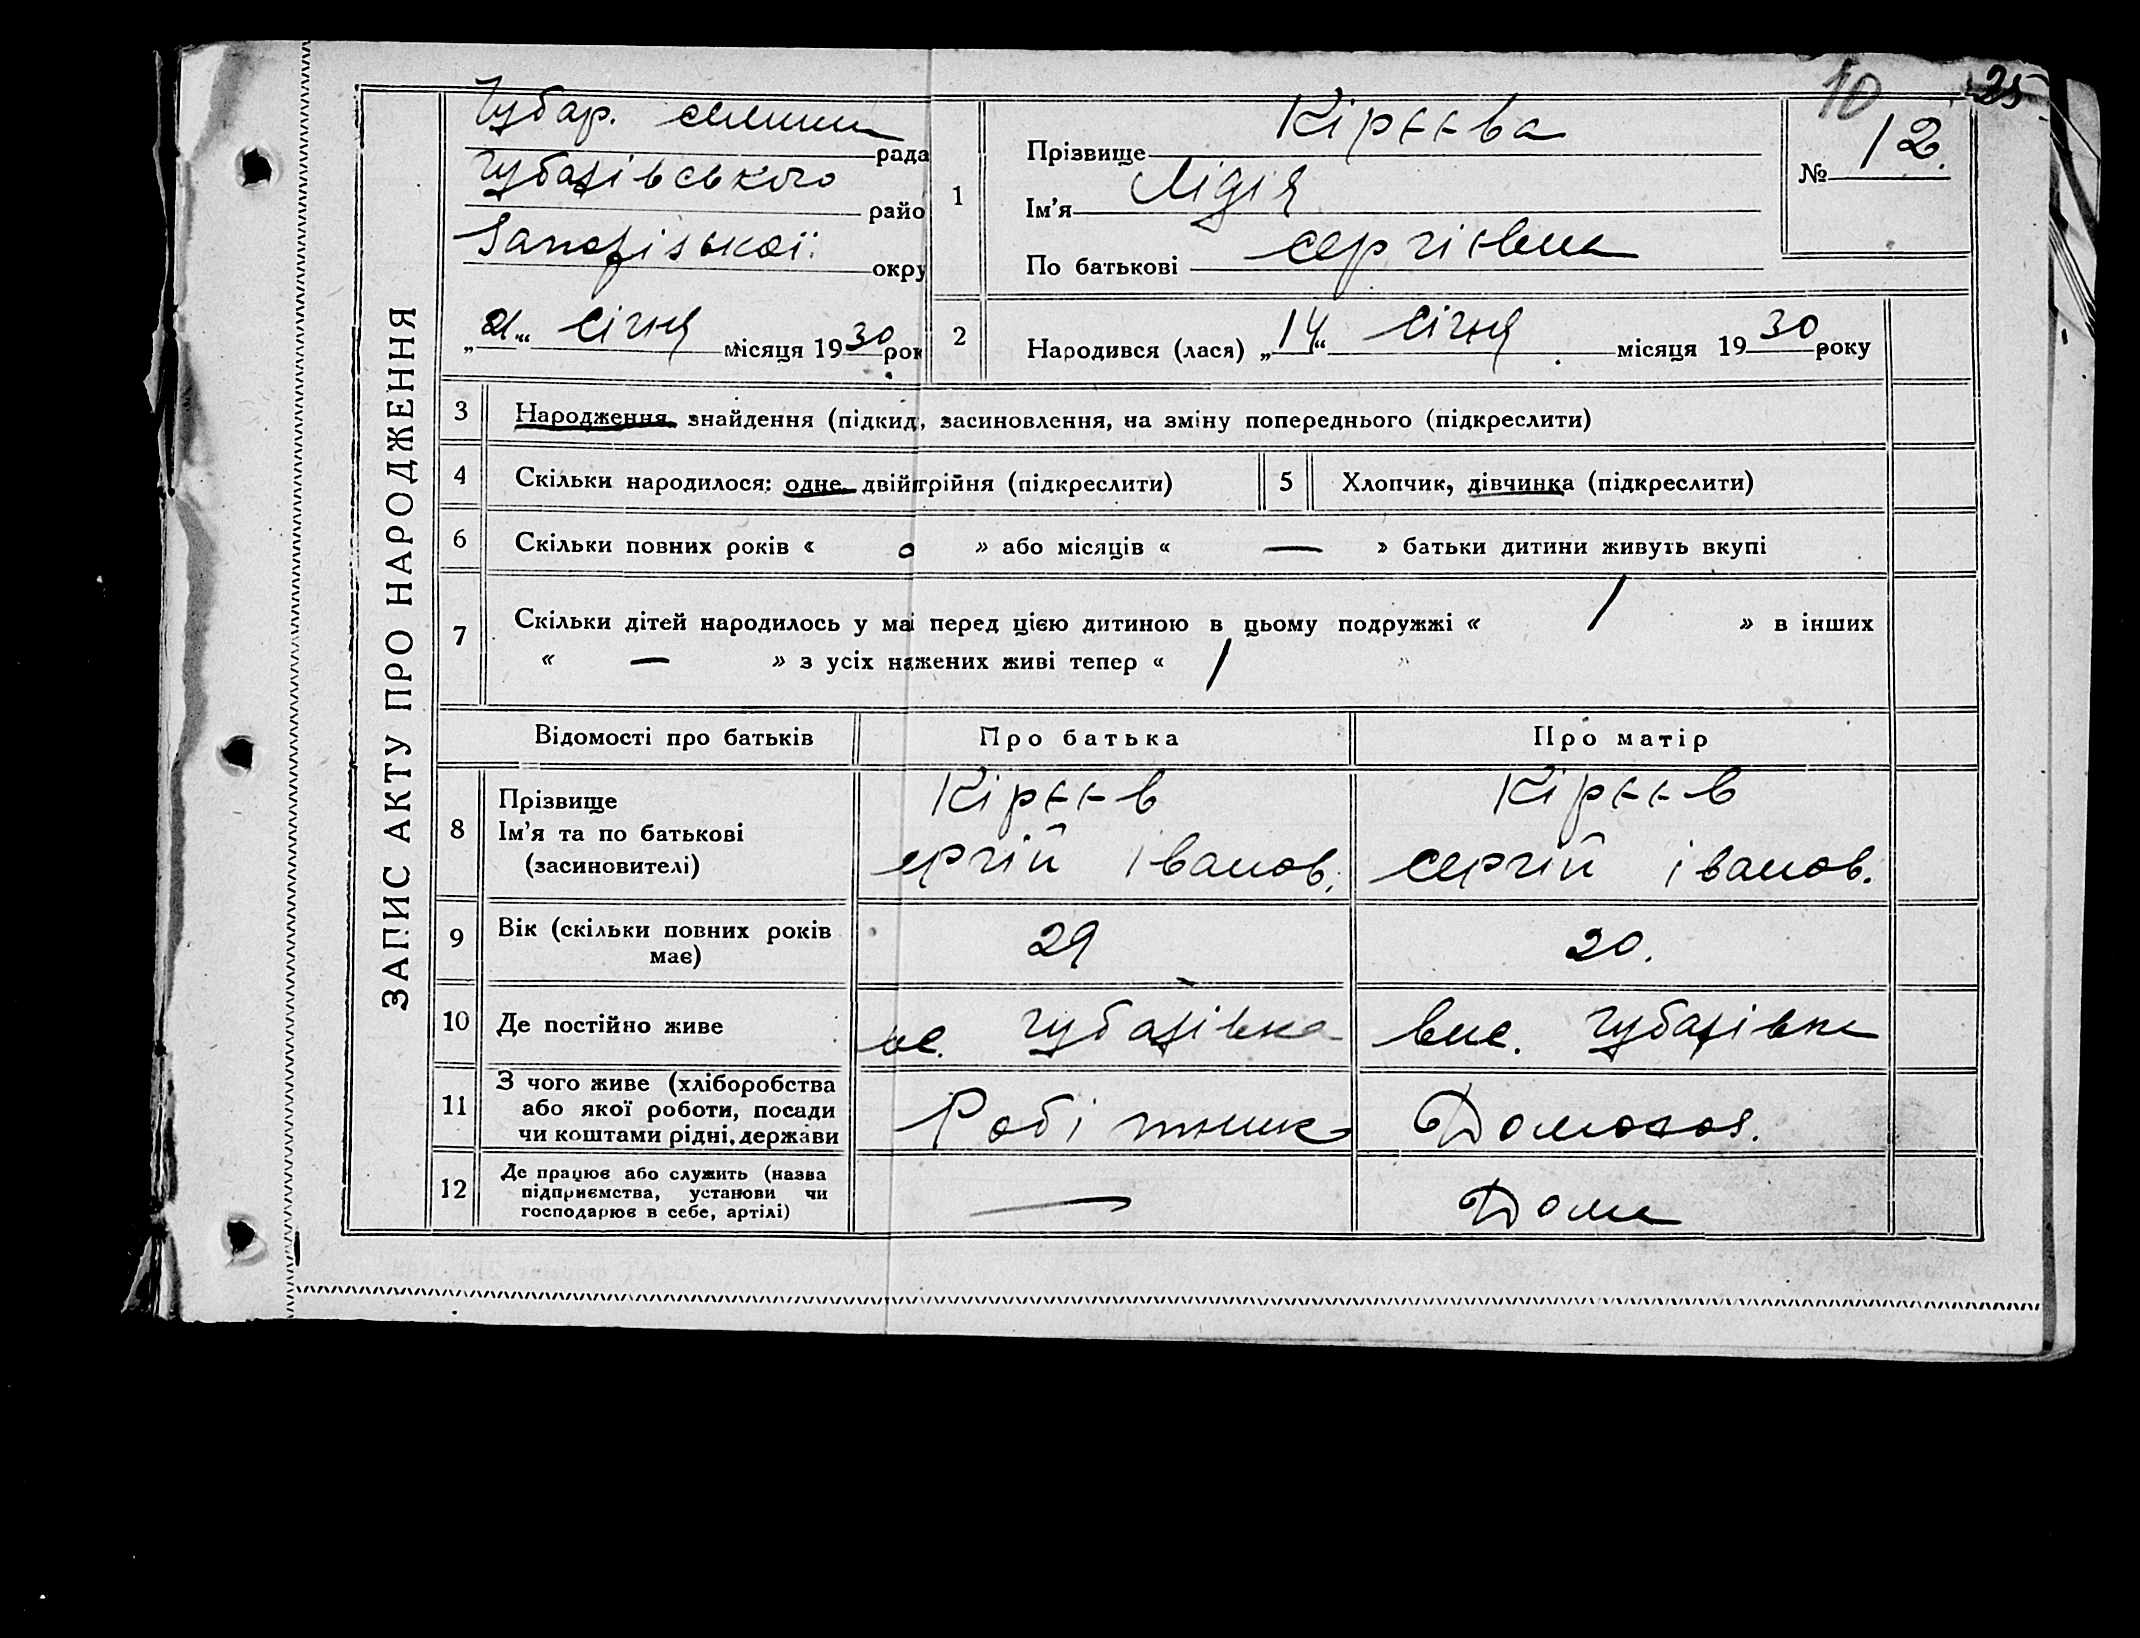 10
25
ЗАПИС АКТУ ПРО НАРОДЖЕННЯ
Чубар. селищн рада
Чубарівського райо
Запорізької окру
„21“ січня місяця 1930 рок
1
Прізвище Кірєєва
Ім’я Лідія
По батькові Сергієвна
№ 12.
2
Народився (лася) „14“ січня місяця 1930 року
3 Народження, знайдення (підкид, засиновлення, на зміну попереднього (підкреслити)
4 Скільки народилося: одне, двійтрійня (підкреслити)
5 Хлопчик, дівчинка (підкреслити)
6 Скільки повних років « 0 » або місяців « — » батьки дитини живуть вкупі
7 Скільки дітей народилось у маі перед цією дитиною в цьому подружжі « 1 » в інших
« — » з усіх нажених живі тепер « 1 »
Відомості про батьків Про батька Про матір
8 Прізвище
Ім’я та по батькові
(засновителі)
Кірєєв
ергій Іванов.
Кірєєв
Сергій Іванов.
9 Вік (скільки повних років
має)
29
20.
10 Де постійно живе
ис. Чубарівка
вис. Чубарівка
11 З чого живе (хліборобства
або якої роботи, посади
чи коштами рідні, держави
Робітник
Домохоз.
12 Де працює або служить (назва
підприємства, установи чи
господарює в себе, артілі)
—
Дома